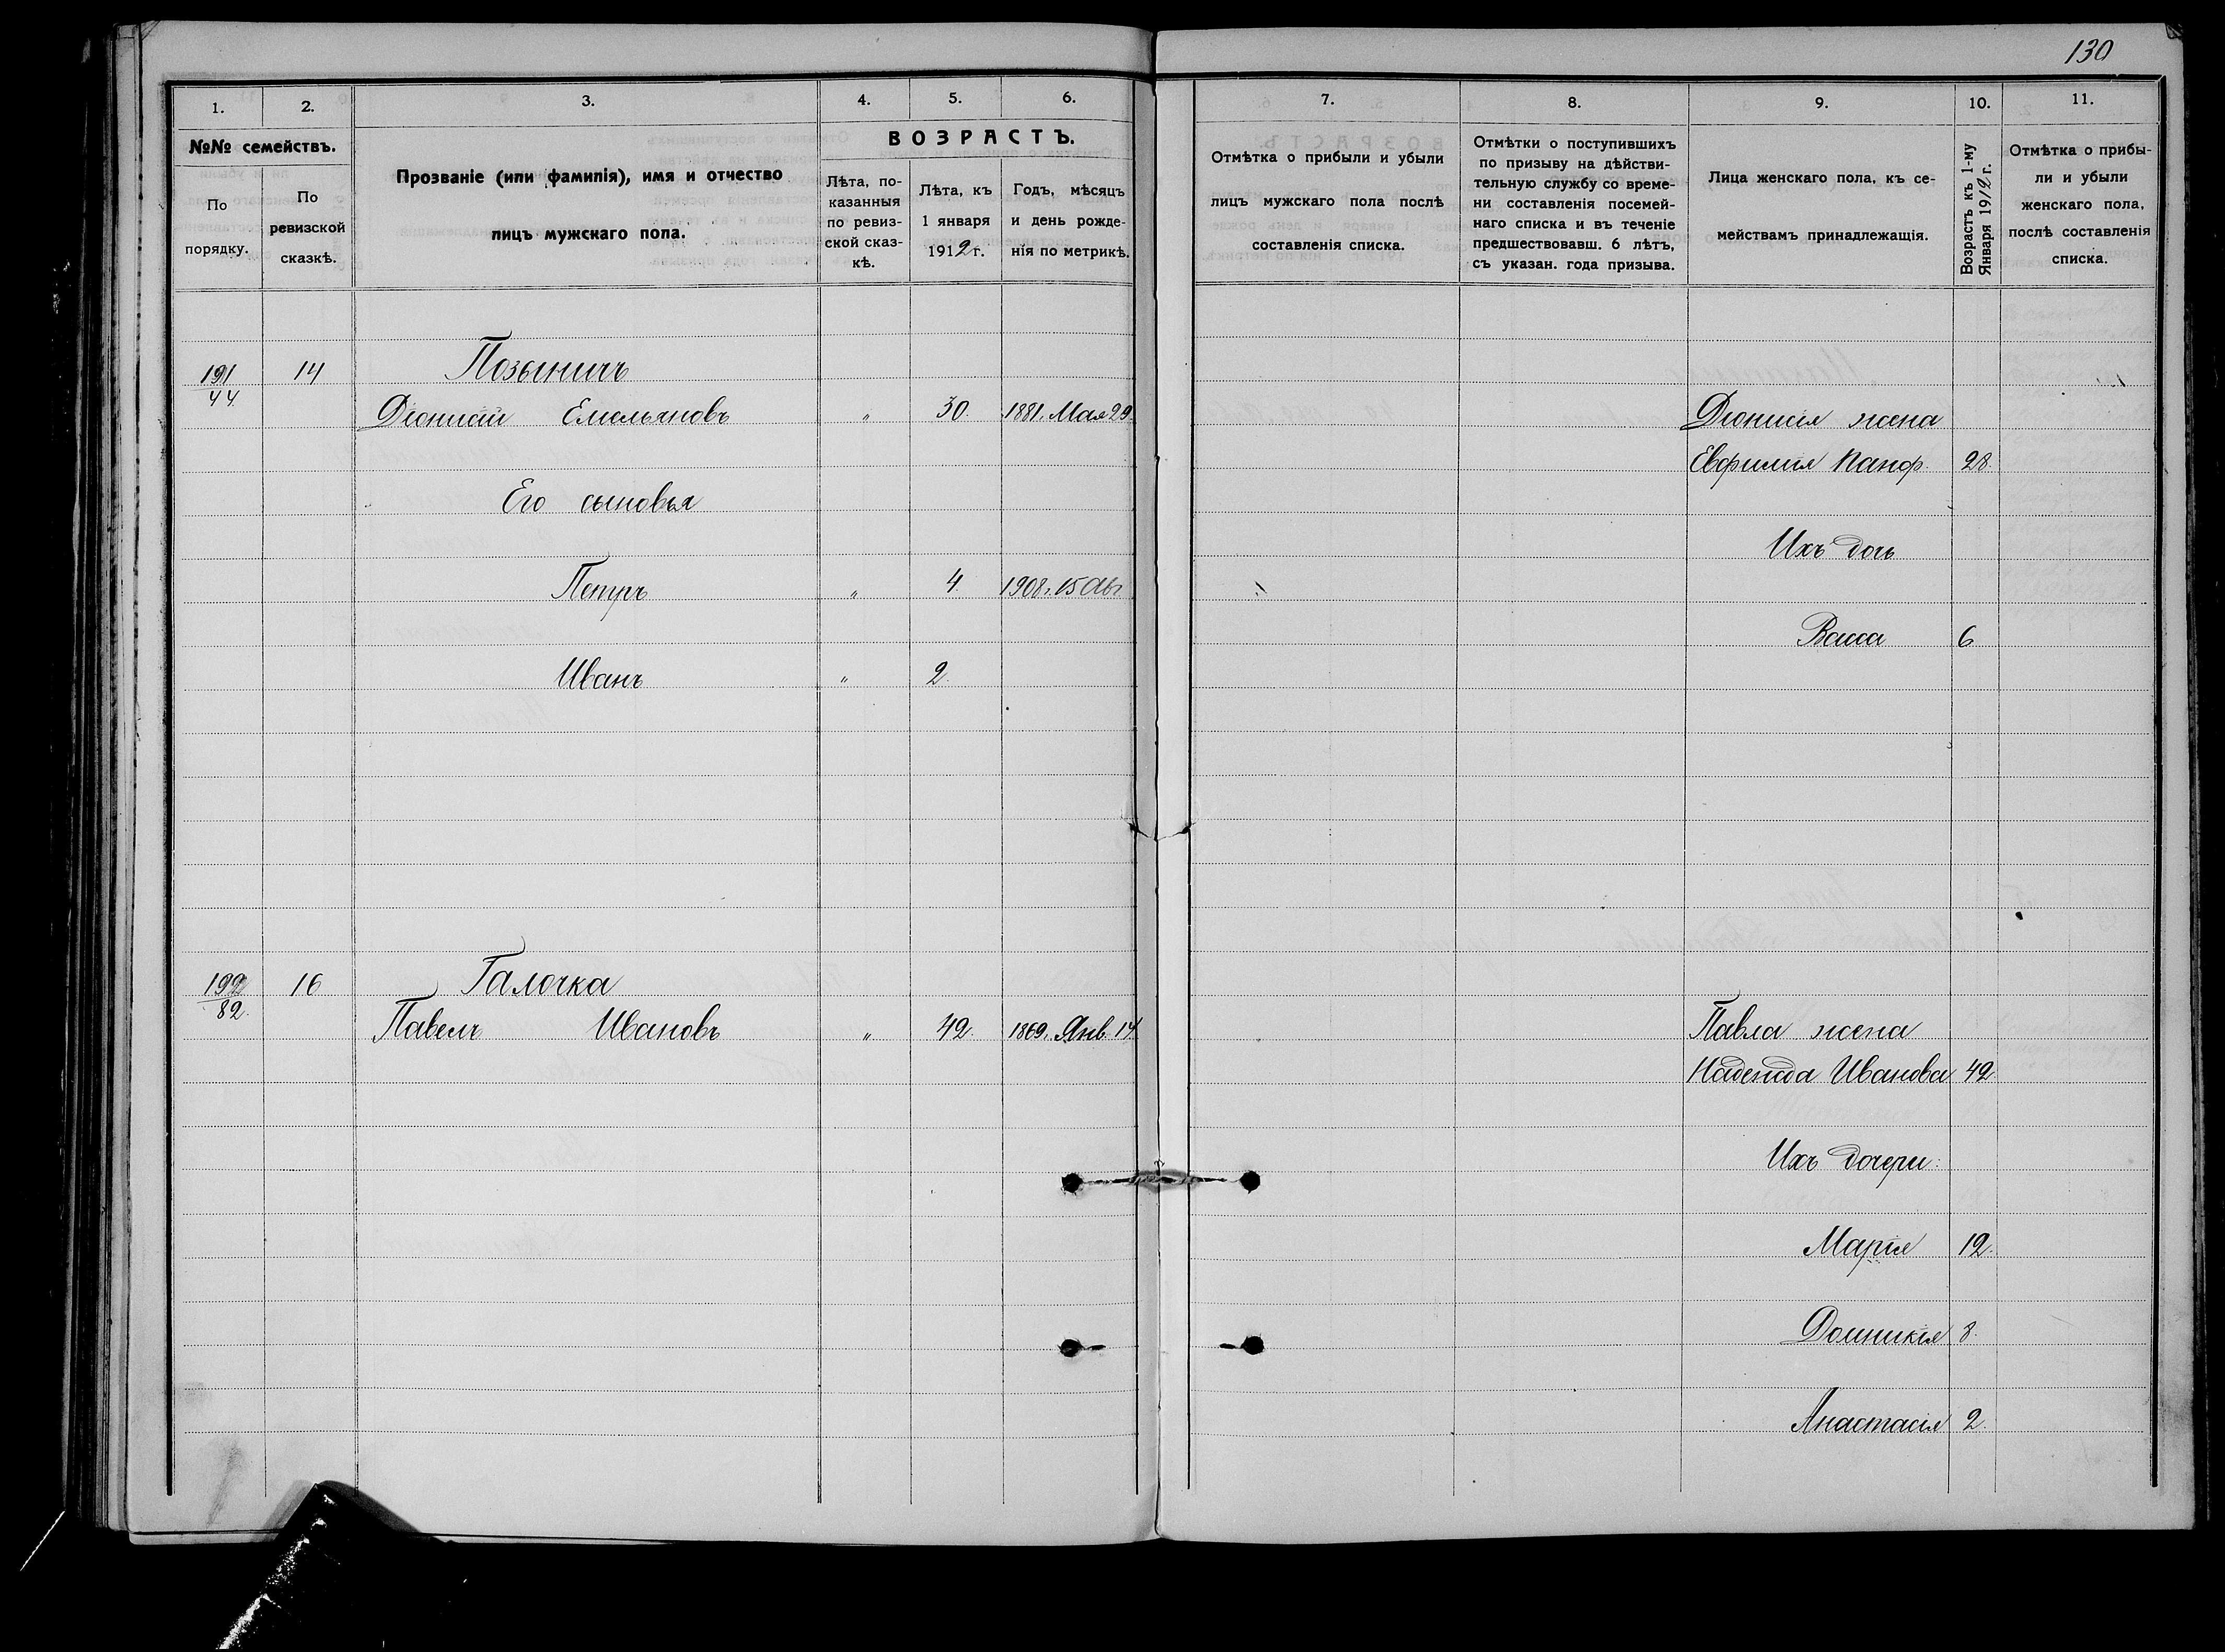 130
1. 2. 3. 4. 5. 6. 7. 8. 9. 10. 11.
№№ семействъ.
По порядку.
По ревизской сказкѣ.
Прозваніе (или фамилія), имя и отчество
лицъ мужскаго пола.
ВОЗРАСТЪ.
Лѣта, по-
казанныя
по ревиз-
ской сказ-
кѣ.
Лѣта, къ
1 января
1912 г.
Годъ, мѣсяцъ
и день рожде-
нія по метрикѣ.
Отмѣтка о прибыли и убыли
лицъ мужскаго пола послѣ
составленія списка.
Отмѣтки о поступившихъ
по призыву на дѣйстви-
тельную службу со време-
ни составленія посемей-
наго списка и въ теченіе
предшествовавш. 6 лѣтъ,
съ указан. года призыва.
Лица женскаго пола, къ се-
мействамъ принадлежащія.
Возрастъ къ 1-му
Января 1912 г.
Отмѣтка о прибы-
ли и убыли
женскаго пола,
послѣ составленія
списка.
191 14 Позыничъ
44
Діонисій Емельяновъ " 30. 1881. Мая 29. Діонисія жена
Евфимія Панф. 28.
Его сыновья
Ихъ дочь
Петръ " 4. 1908. 15 Авг
Васса 6
Иванъ " 2.
192 16 Галочка
82.
Павелъ Ивановъ " 42. 1869. Янв. 14. Павла жена
Надежда Иванова 42.
Ихъ дочери:
Марія 12.
Домникія 8.
Анастасія 2.